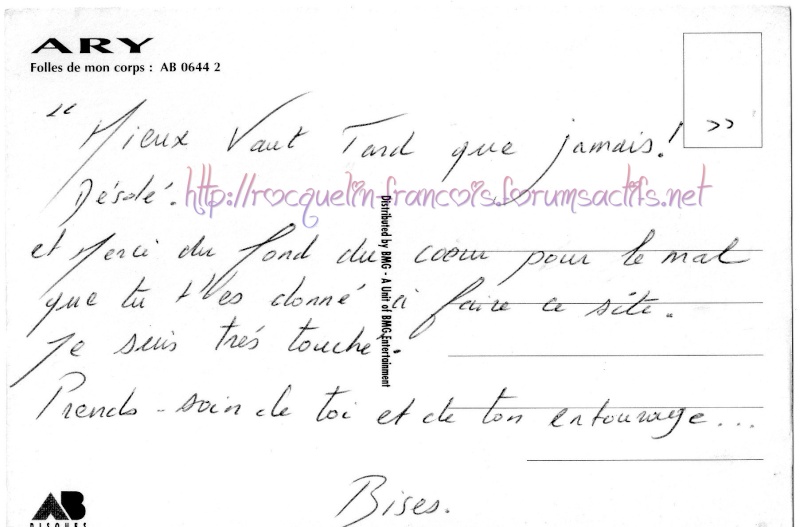 ARY
Folles de mon corps : AB 0644 2
" Mieux Vaut Tard que jamais! >>
Désolé.
http://rocquelin-francois.forumsactifs.net
et Merci du fond du coeur pour le mal
que tu t'es donné à faire ce site.
Je suis très touché.
Prends-soin de toi et de ton entourage...
Bises.
Distributed by BMG - A Unit of BMG Entertainment
AB
DISQUES